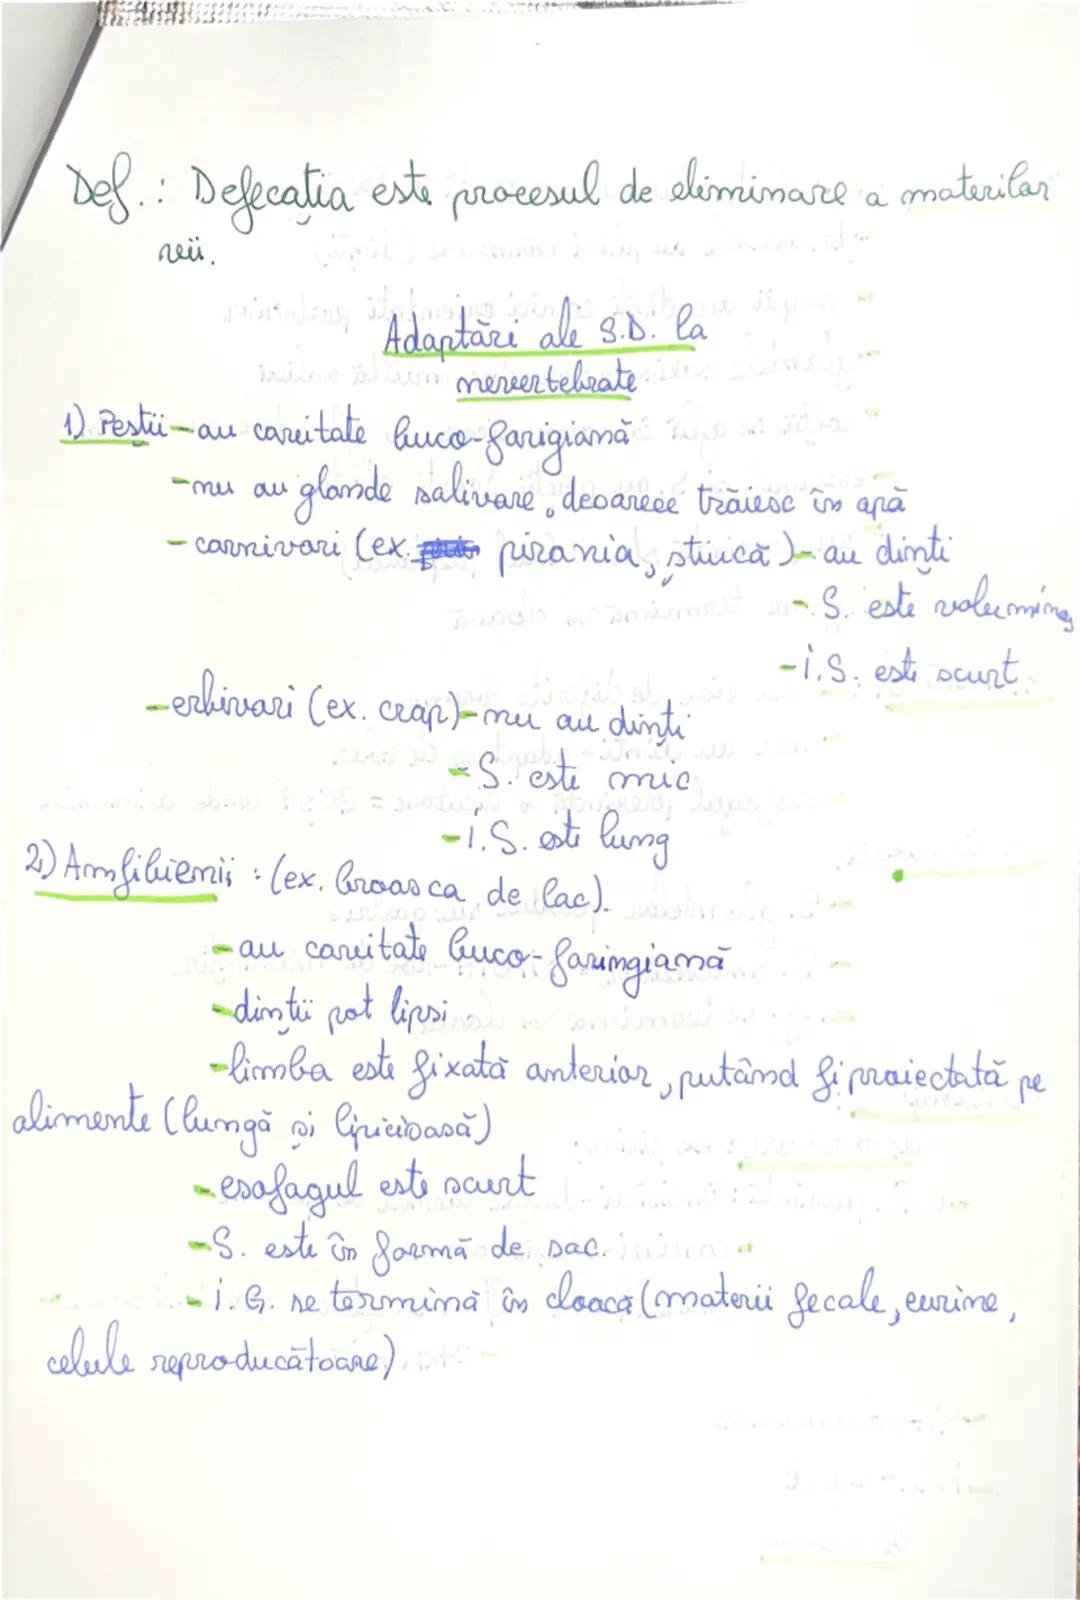 Def.: Defecația este procesul de eliminare a materilor
reii.
Adaptări ale S.D. la
nevertebrate
1) Peștii - au cavitate buco-farigiană
- nu au glande salivare, deoarece trăiesc în apă
- carnivori (ex. pirania, știucă) - au dinți
- S. este volumino
- i.S. este scurt
- erbivori (ex. crap) - nu au dinți
- S. este mic
- i.S. este lung
2) Amfibienii : (ex. broasca de lac).
- au cavitate buco-faringiană
- dinții pot lipsi
- limba este fixată anterior, putând fi proiectată pe
alimente (lungă și lipicioasă)
- esofagul este scurt
- S. este în formă de sac.
- i.G. se termină în cloacă (materii fecale, urine,
celule reproducătoare)